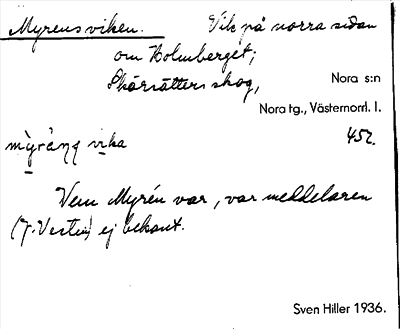 Myrensviken. Vik på norra sidan
om Holmberget;
Skärsätters skog, Nora s:n
Nora tg., Västernorrl. l.
my̆rǟnɳ vika 452.
Vem Myrén var, var meddelaren
(J. Vestin) ej bekant.
Sven Hiller 1936.